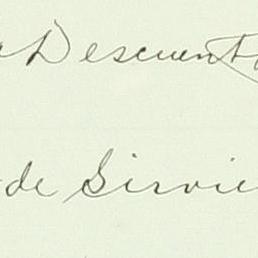 Descuent
de Sirvie